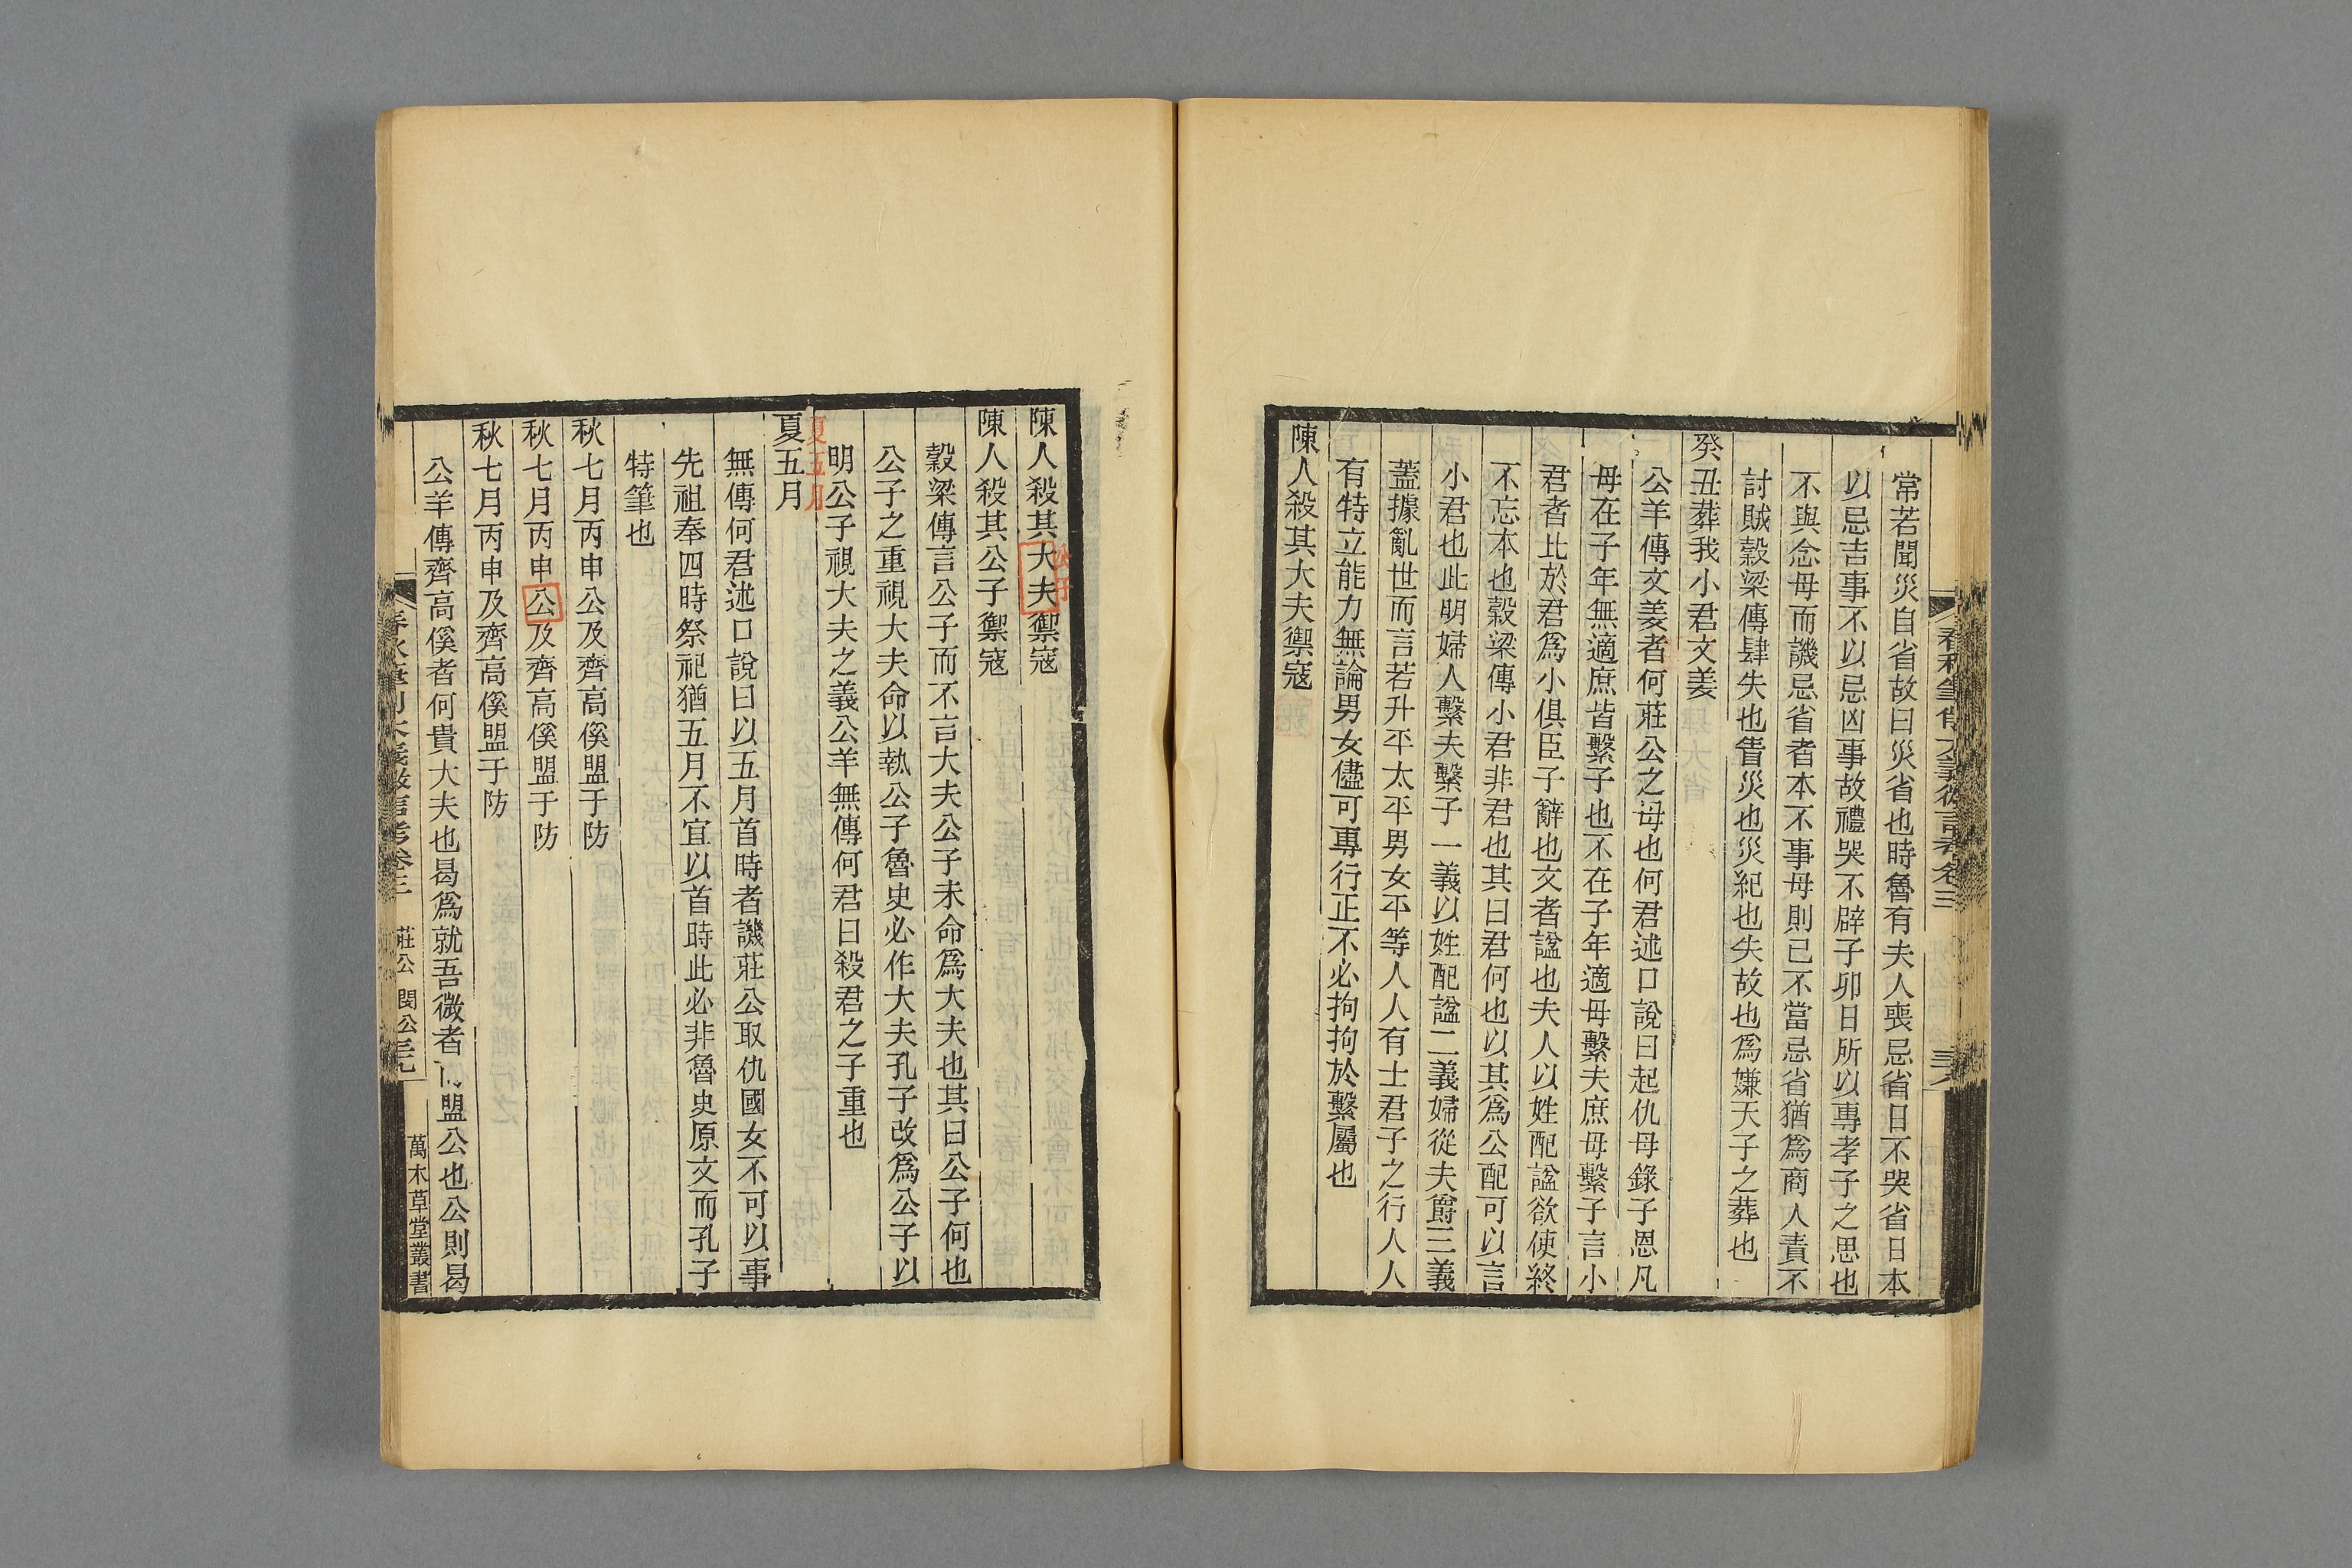 常若聞災自省故曰災省也時魯有夫人喪忌省日不哭省日本
以忌吉事不以忌凶事故禮哭不辟子卯日所以專孝子之思也
不與念母而譏忌省者本不事母則已不當忌省猶爲商人責不
討賊穀梁傳肆失也眚災也災紀也失故也爲嫌天子之葬也
癸丑葬我小君文姜
公羊傳文姜者何莊公之母也何君述口說曰起仇母錄子恩凡
母在子年無適庶皆繫子也不在子年適母繫夫庶母繫子言小
君者比於君爲小俱臣子辭也文者諡也夫人以姓配諡欲使終
不忘本也穀梁傳小君非君也其曰君何也以其爲公配可以言
小君也此明婦人繫夫繫子一義以姓配諡二義婦從夫爵三義
蓋據亂世而言若升平太平男女平等人人有士君子之行人人
有特立能力無論男女儘可專行正不必拘拘於繫屬也
陳人殺其大夫禦寇
陳人殺其大夫禦寇
公子
陳人殺其公子禦寇
穀梁傳言公子而不言大夫公子未命爲大夫也其曰公子何也
公子之重視大夫命以執公子魯史必作大夫孔子改爲公子以
明公子視大夫之義公羊無傳何君曰殺君之子重也
夏五月
夏五月
無傳何君述口說曰以五月首時者譏莊公取仇國女不可以事
先祖奉四時祭祀猶五月不宜以首時此必非魯史原文而孔子
特筆也
秋七月丙申公及齊高傒盟于防
秋七月丙申公及齊高傒盟于防
秋七月丙申及齊高傒盟于防
公羊傳齊高傒者何貴大夫也曷爲就吾微者盟公也公則曷
春秋筆削大義微言考卷三
莊公 閔公
萬木草堂叢書